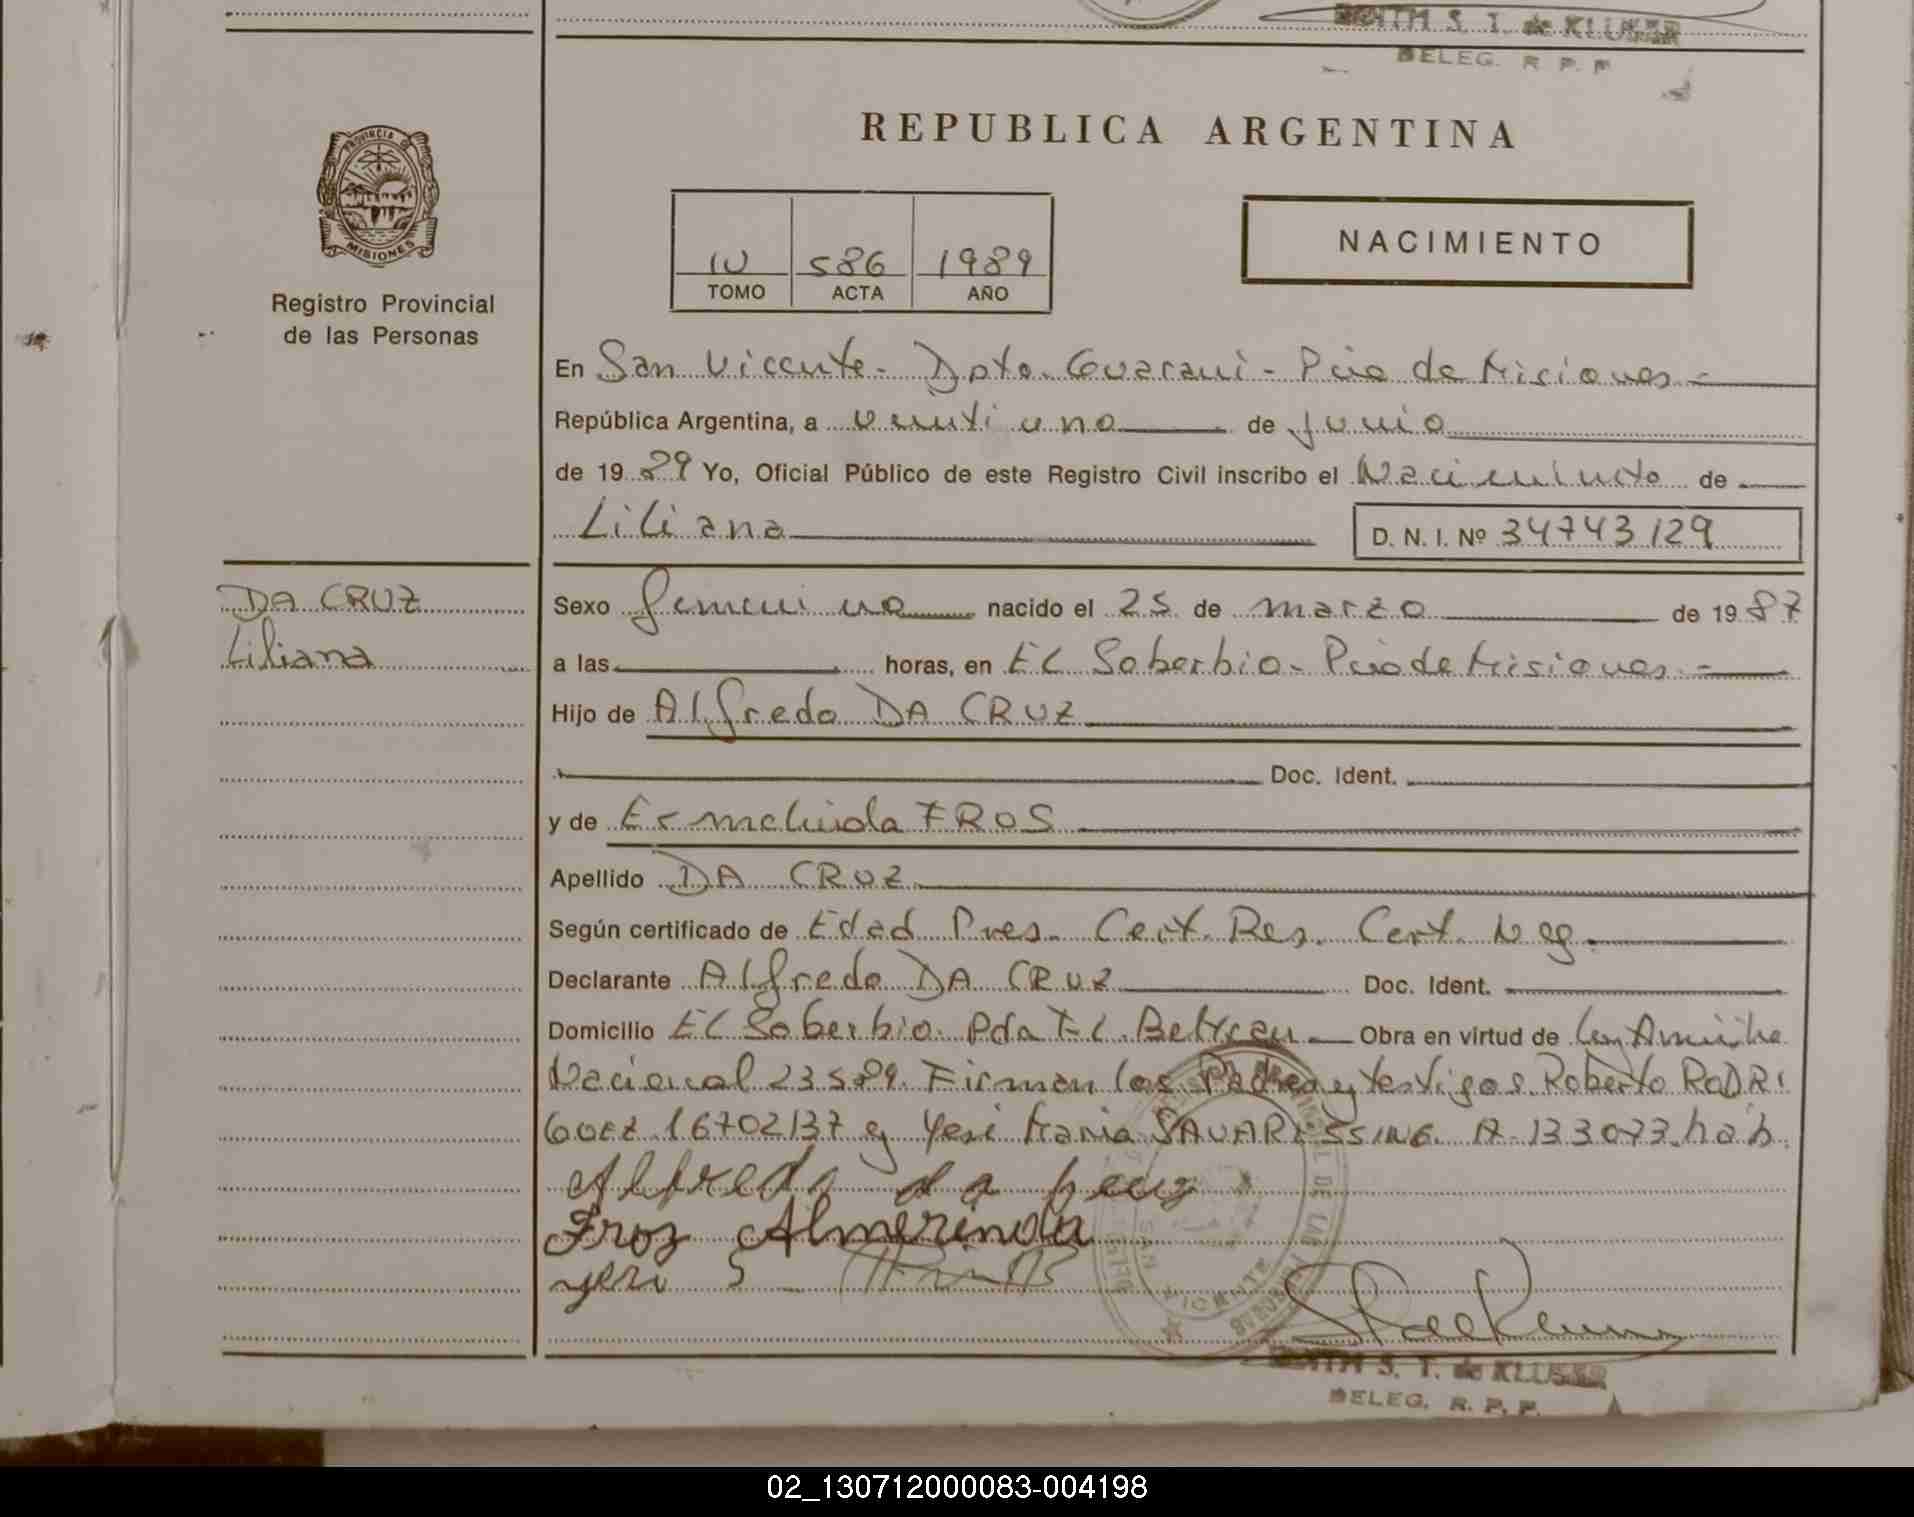 EDITH S. T. de KLUSER
DELEG. R. P. P.
PROVINCIA
MISIONES
Registro Provincial
de las Personas
REPUBLICA ARGENTINA
NACIMIENTO
IV 586 1989
TOMO ACTA AÑO
En San Vicente - Dpto. Guarani - Pcia de Misiones -
República Argentina, a veintiuno de junio
de 1989 Yo, Oficial Público de este Registro Civil inscribo el Nacimiento de
Liliana
D. N. I. Nº 34743129
DA CRUZ
Liliana
Sexo femenino nacido el 25 de marzo de 1987
a las horas, en EL Soberbio - Pcia de Misiones -
Hijo de Alfredo DA CRUZ
Doc. Ident.
y de FROS
Apellido DA CRUZ
Según certificado de Edad Pres. Cert. Res. Cert. Neg.
Declarante Alfredo DA CRUZ Doc. Ident.
Domicilio EL Soberbio. Pda F. L. Beltran Obra en virtud de Ley Amnistia
Nacional 23589. Firman los Padres y testigos Roberto RODRI
GUEZ 16702137 y Yeni Maria 133073 hab.
Alfredo da Cruz
Froz Almerinda
Yeni S
SAN VICENTE
EDITH S. T. de KLUSER
DELEG. R. P. P.
02_130712000083-004198